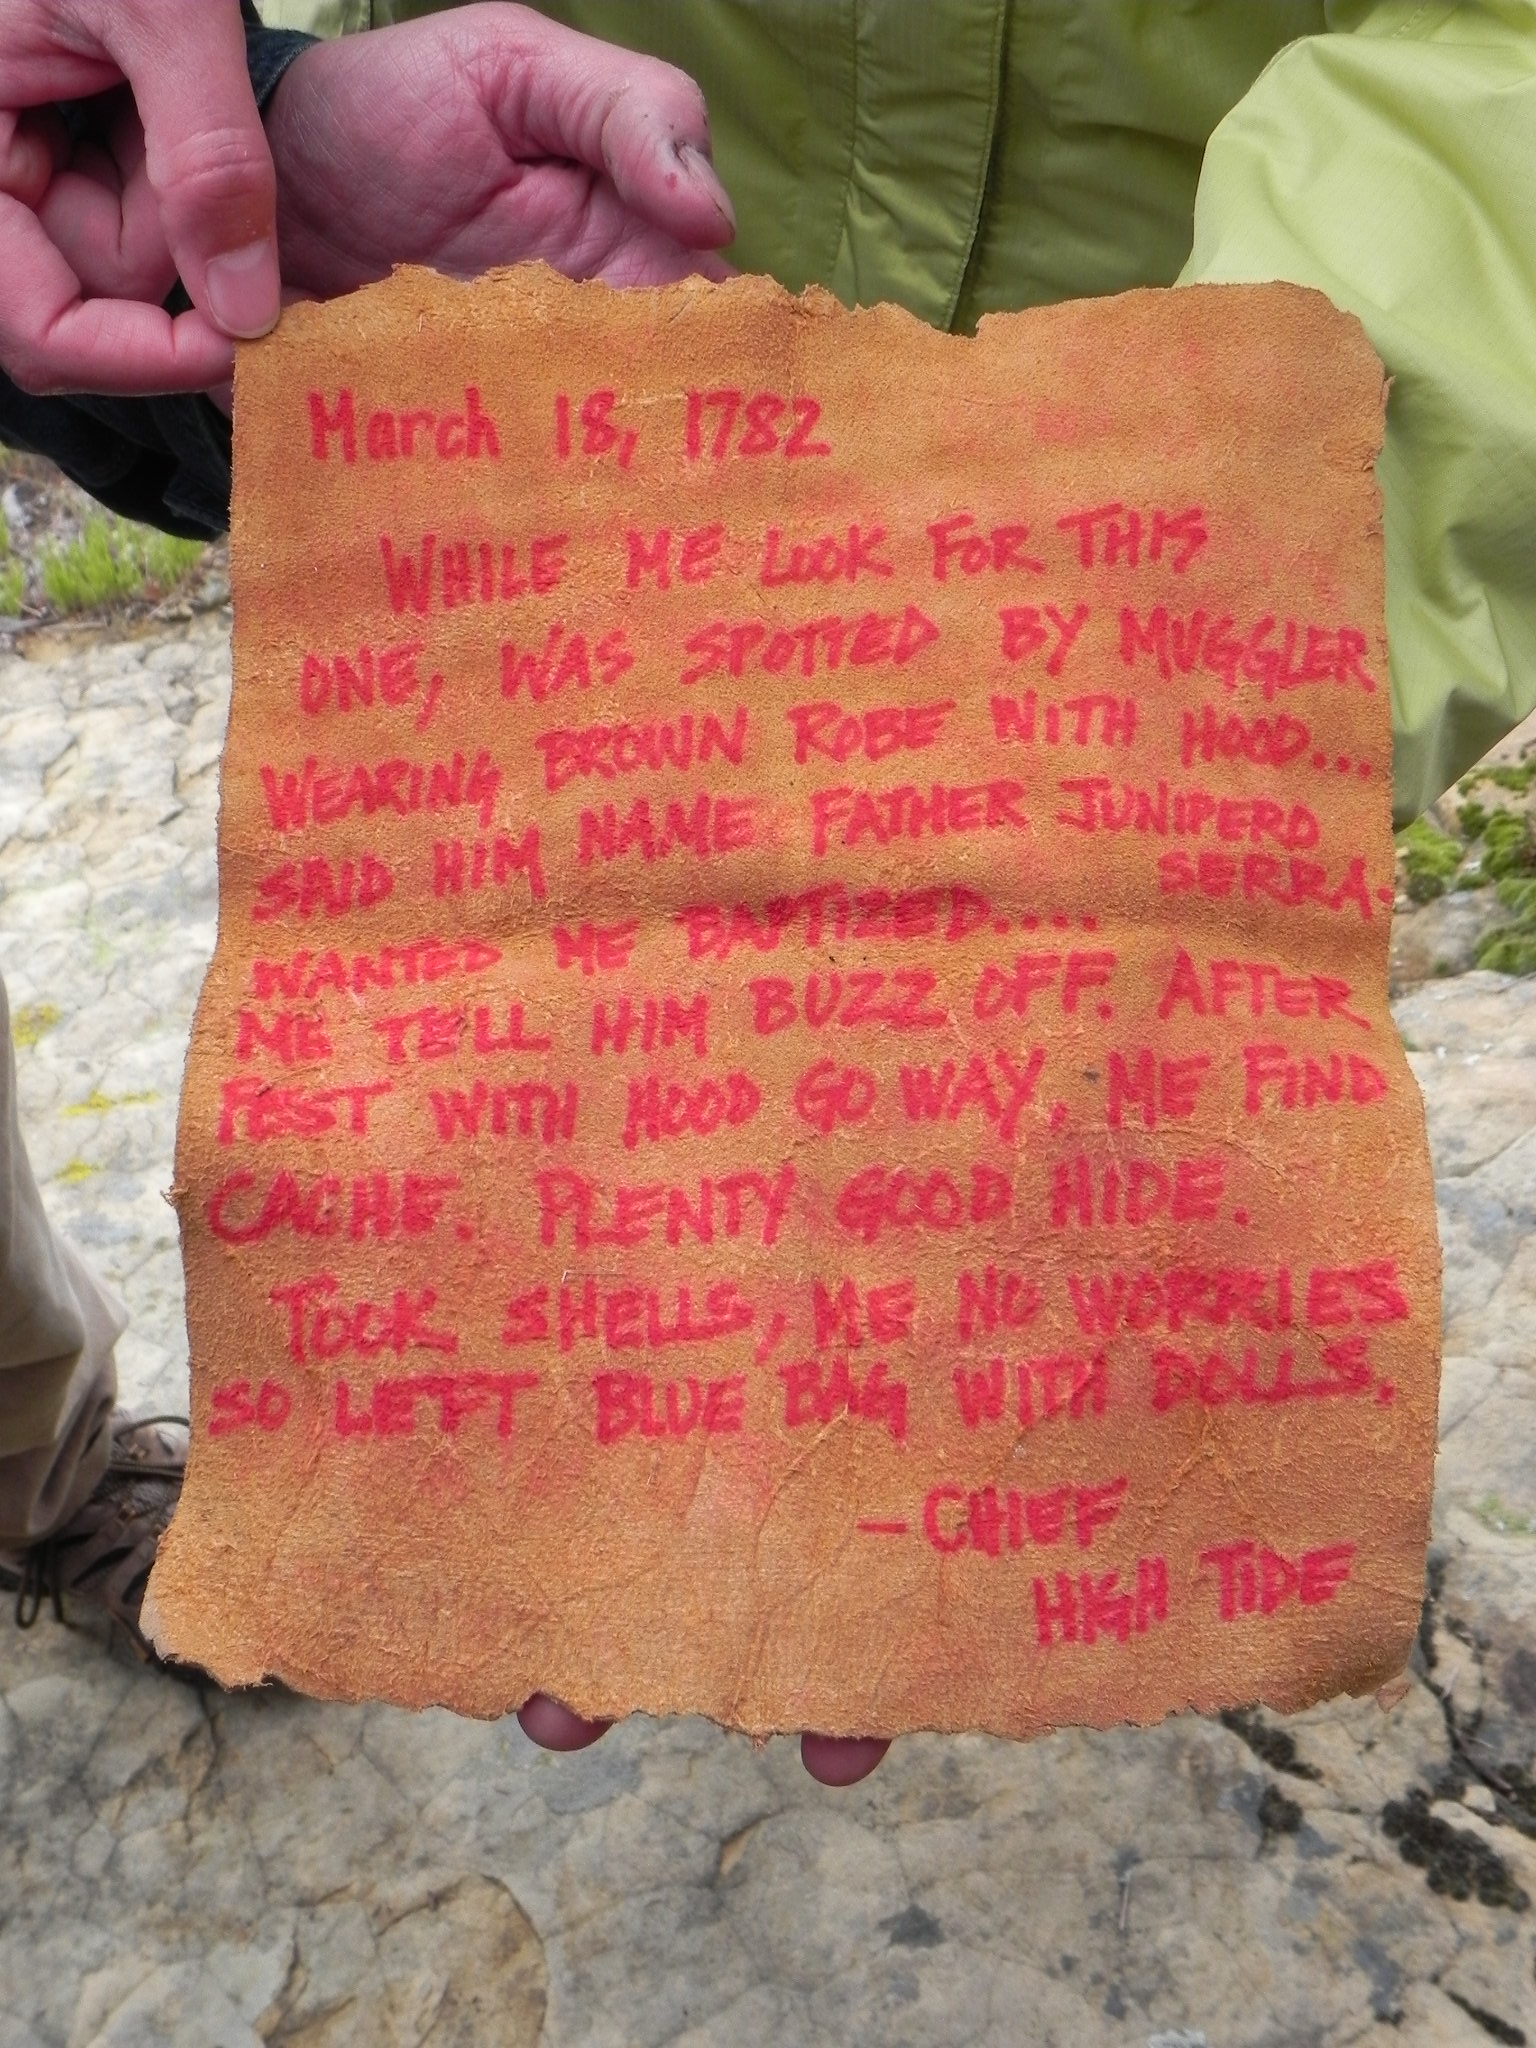 March 18, 1782
WHILE ME LOOK FOR THIS
ONE, WAS SPOTTED BY MUGGLER
WEARING BROWN ROBE WITH HOOD...
SAID HIM NAME FATHER JUNIPERO
SERRA.
WANTED ME BAPTIZED....
ME TELL HIM BUZZ OFF. AFTER
PEST WITH HOOD GO WAY, ME FIND
CACHE. PLENTY GOOD HIDE.
TOOK SHELLS, ME NO WORRIES
SO LEFT BLUE BAG WITH DOLLS.
- CHIEF
HIGH TIDE